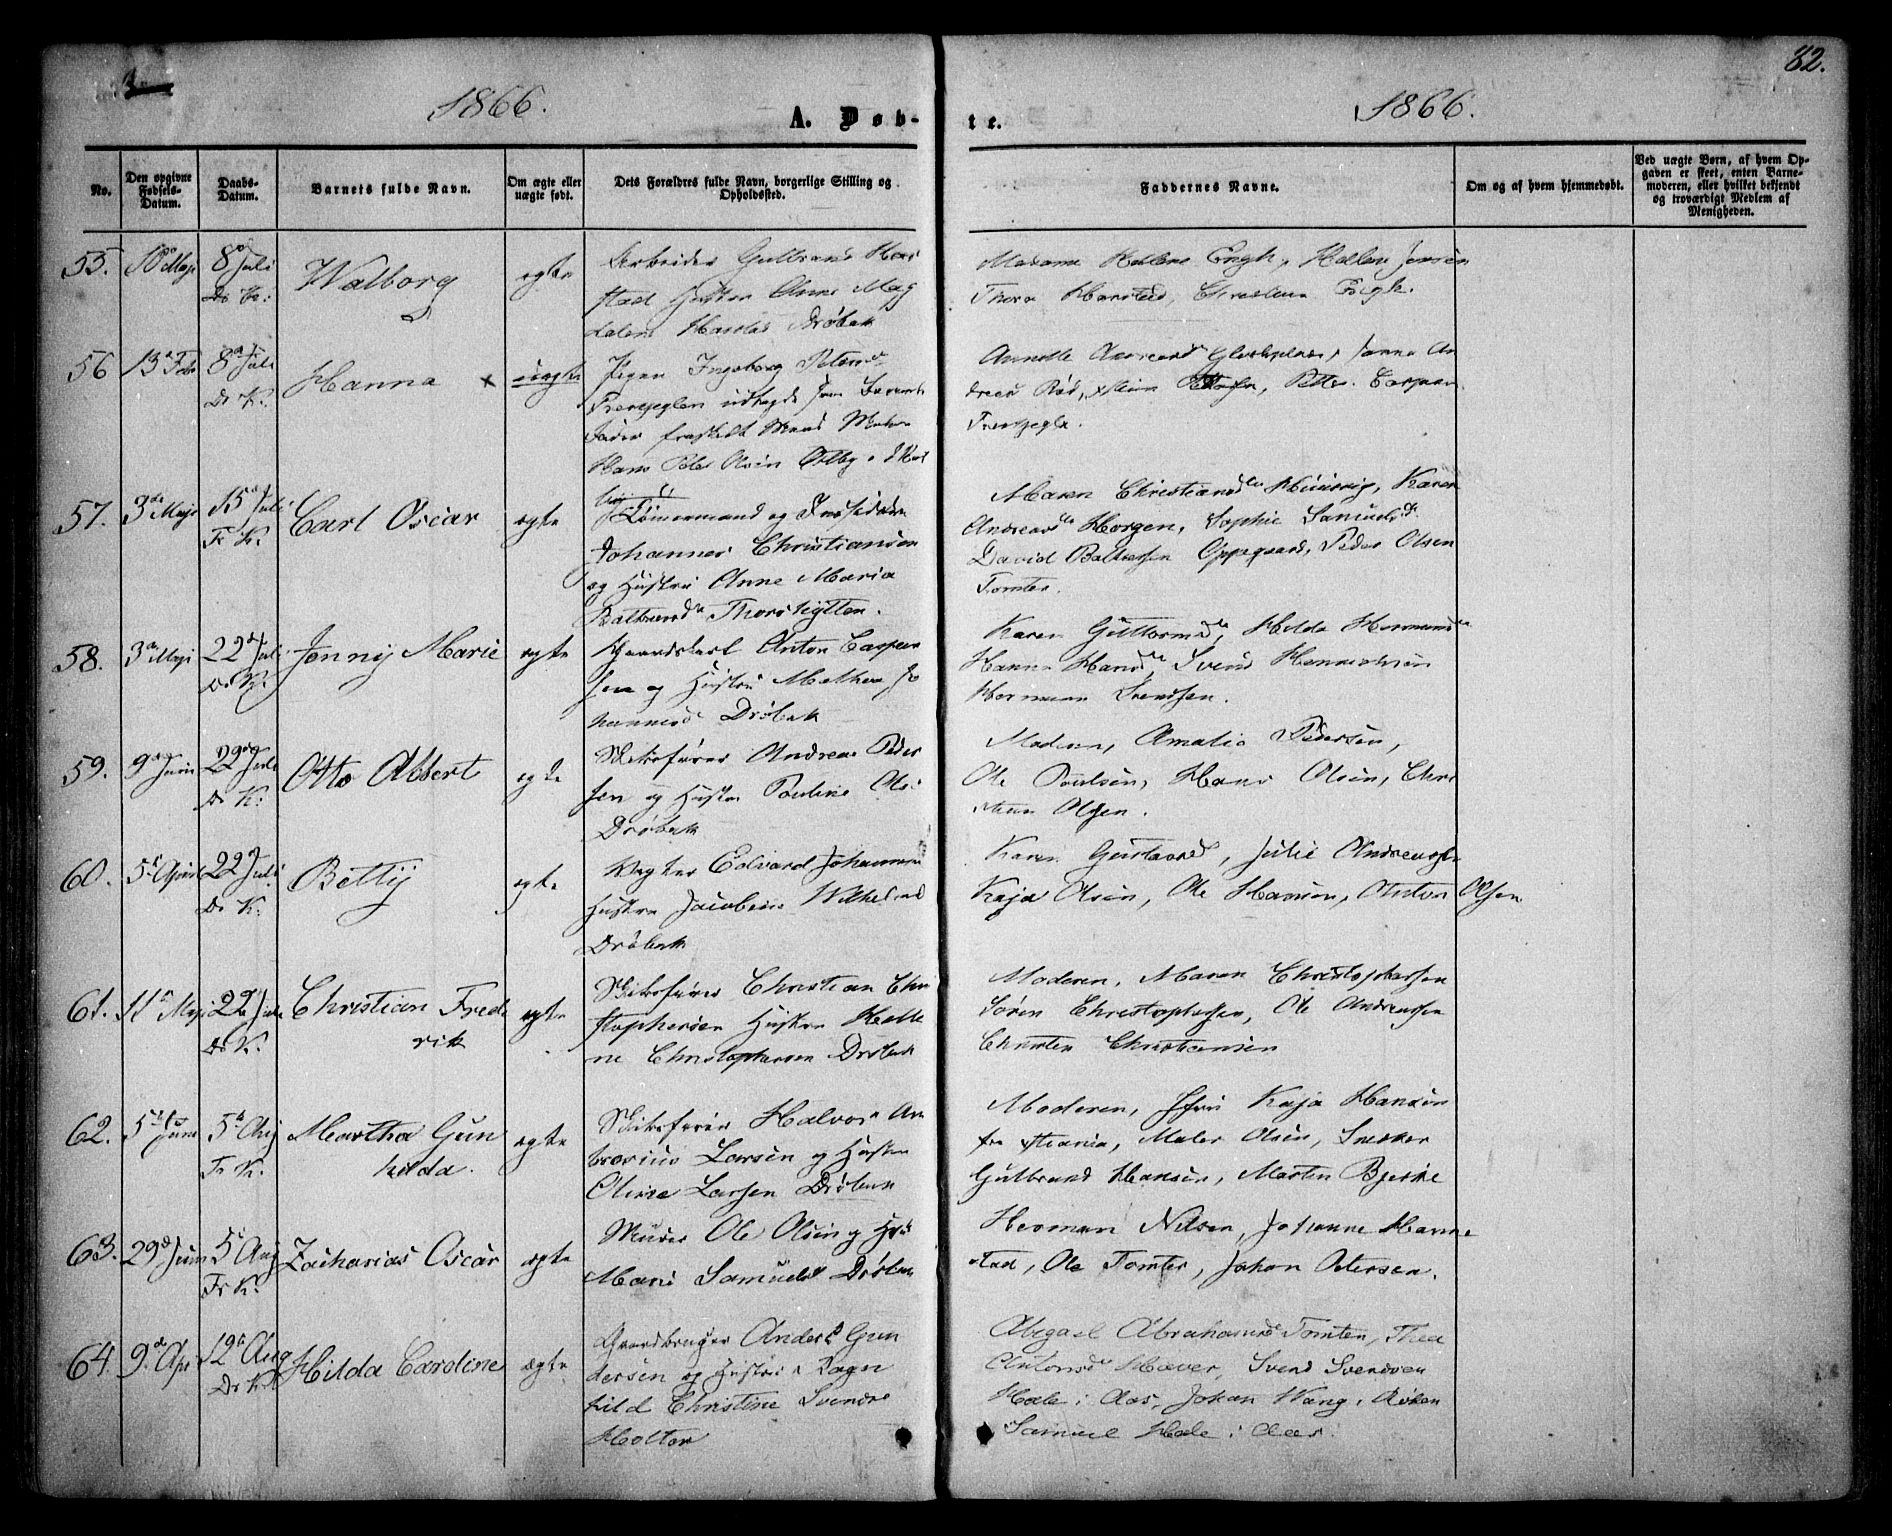 82.
1866.
A. Døb-
te.
1866.
No.
Den opgivne Fødsels-Datum.
Daabs-Datum.
Barnets fulde Navn.
Om ægte eller uægte født.
Dets Forældres fulde Navn, borgerlige Stilling og Opholdssted.
Faddernes Navne.
Om og af hvem hjemmedøbt.
Ved uægte Børn, af hvem Opgaven er skeet, enten Barnemoderen, eller hvilket bekjendt og troværdigt Medlem af Menigheden.
55. 18 Maji 8 Juli Dr K: Walborg ægte
Arbeider Gulbrand Har
stad Hustru Anne Mag
dalene Drøbak
Madame Helene Engh, Hellen Jensen
Thora Harstad, Christian Engh.
56 13 Feb 8 Juli Dr K. Hanna x uægte
Pigen Ingeborg
udlagt som Barne
fader
Hans Olsen
Annette Andreas
57. 3de Maji 15d Juli Fr K. Carl Oscar ægte
Tømmermand og
Johannes Christiansen
og Hustru Anne Maria
Baltzersd Thorshytten.
Maren Christiansdtr Huusvig, Karen
Andreasdtr Horgen, Sophie Samuelsd.
David Baltzersen Oppegaard, Peder Olsen
Tomter.
58. 3de Maji 22d Juli Dr K. Jenny Marie ægte
Gaardskarl Anton Casper
sen og Hustru Mathea Jo
hannesd Drøbak
Karen Guttormsd, Hilda Hermansdtr
Hanna Hansdtr, Svend
Herman Svendsen.
59. 9de Juni 22de Juli Dr K. Otto Albert ægte
Skibsfører Andreas Peder
sen og Hustru Pauline Ols
Drøbak
Moderen, Amalie Pedersen,
Ole Poulsen, Hans Olsen, Chri
stian Olsen.
60. 5te April 22d Juli Dr K. Betty ægte
Vægter Edvard Johannes
Hustru Jacobine Wilhelmsd
Drøbak
Karen Gustavsd, Julie Andreasdtr
Kaja Olsen, Ole Hansen, Anton Olsen
61. 11te Maji 22de Juli Dr K. Christian Fred
rik ægte
Skibsfører Christian Chri
stophersen Hustru Helle
ne Christophersen Drøbak
Moderen, Maren Christophersen
Søren Christophersen, Ole Andreassen
Christen Christiansen
62. 5te Juni 5te Aug Fr K. Martha Gun
hilda. ægte
Skibsfører Halvor Am
brosius Larsen og Hustru
Olivia Larsen Drøbak
Moderen, Kaja Hansen
fra Xtiania, Maler Olsen, Snekker
Gulbrand Hansen, Morten Bjerke
63. 29de Juni 5 Aug Fr K. Zacharias Oscar ægte
Murer Ole Olsen og Hus
Marie Samuelsd Drøbak
Herman Nilsen, Johanne Harme
stad, Ole Tomter, Johan Petersen.
64. 9de Apr 12te Aug Dr K. Hilda Cardine ægte
Gaardbruger Anders Gun
dersen og Hustru Ragn
hild Christine Svends
Holter
Abegael Abrahamsd Tomten, Thea
Antonsdtr Haver, Svend Svendsen
Hole i Aas, Johan Wang,
Samuel Hole i Aas.